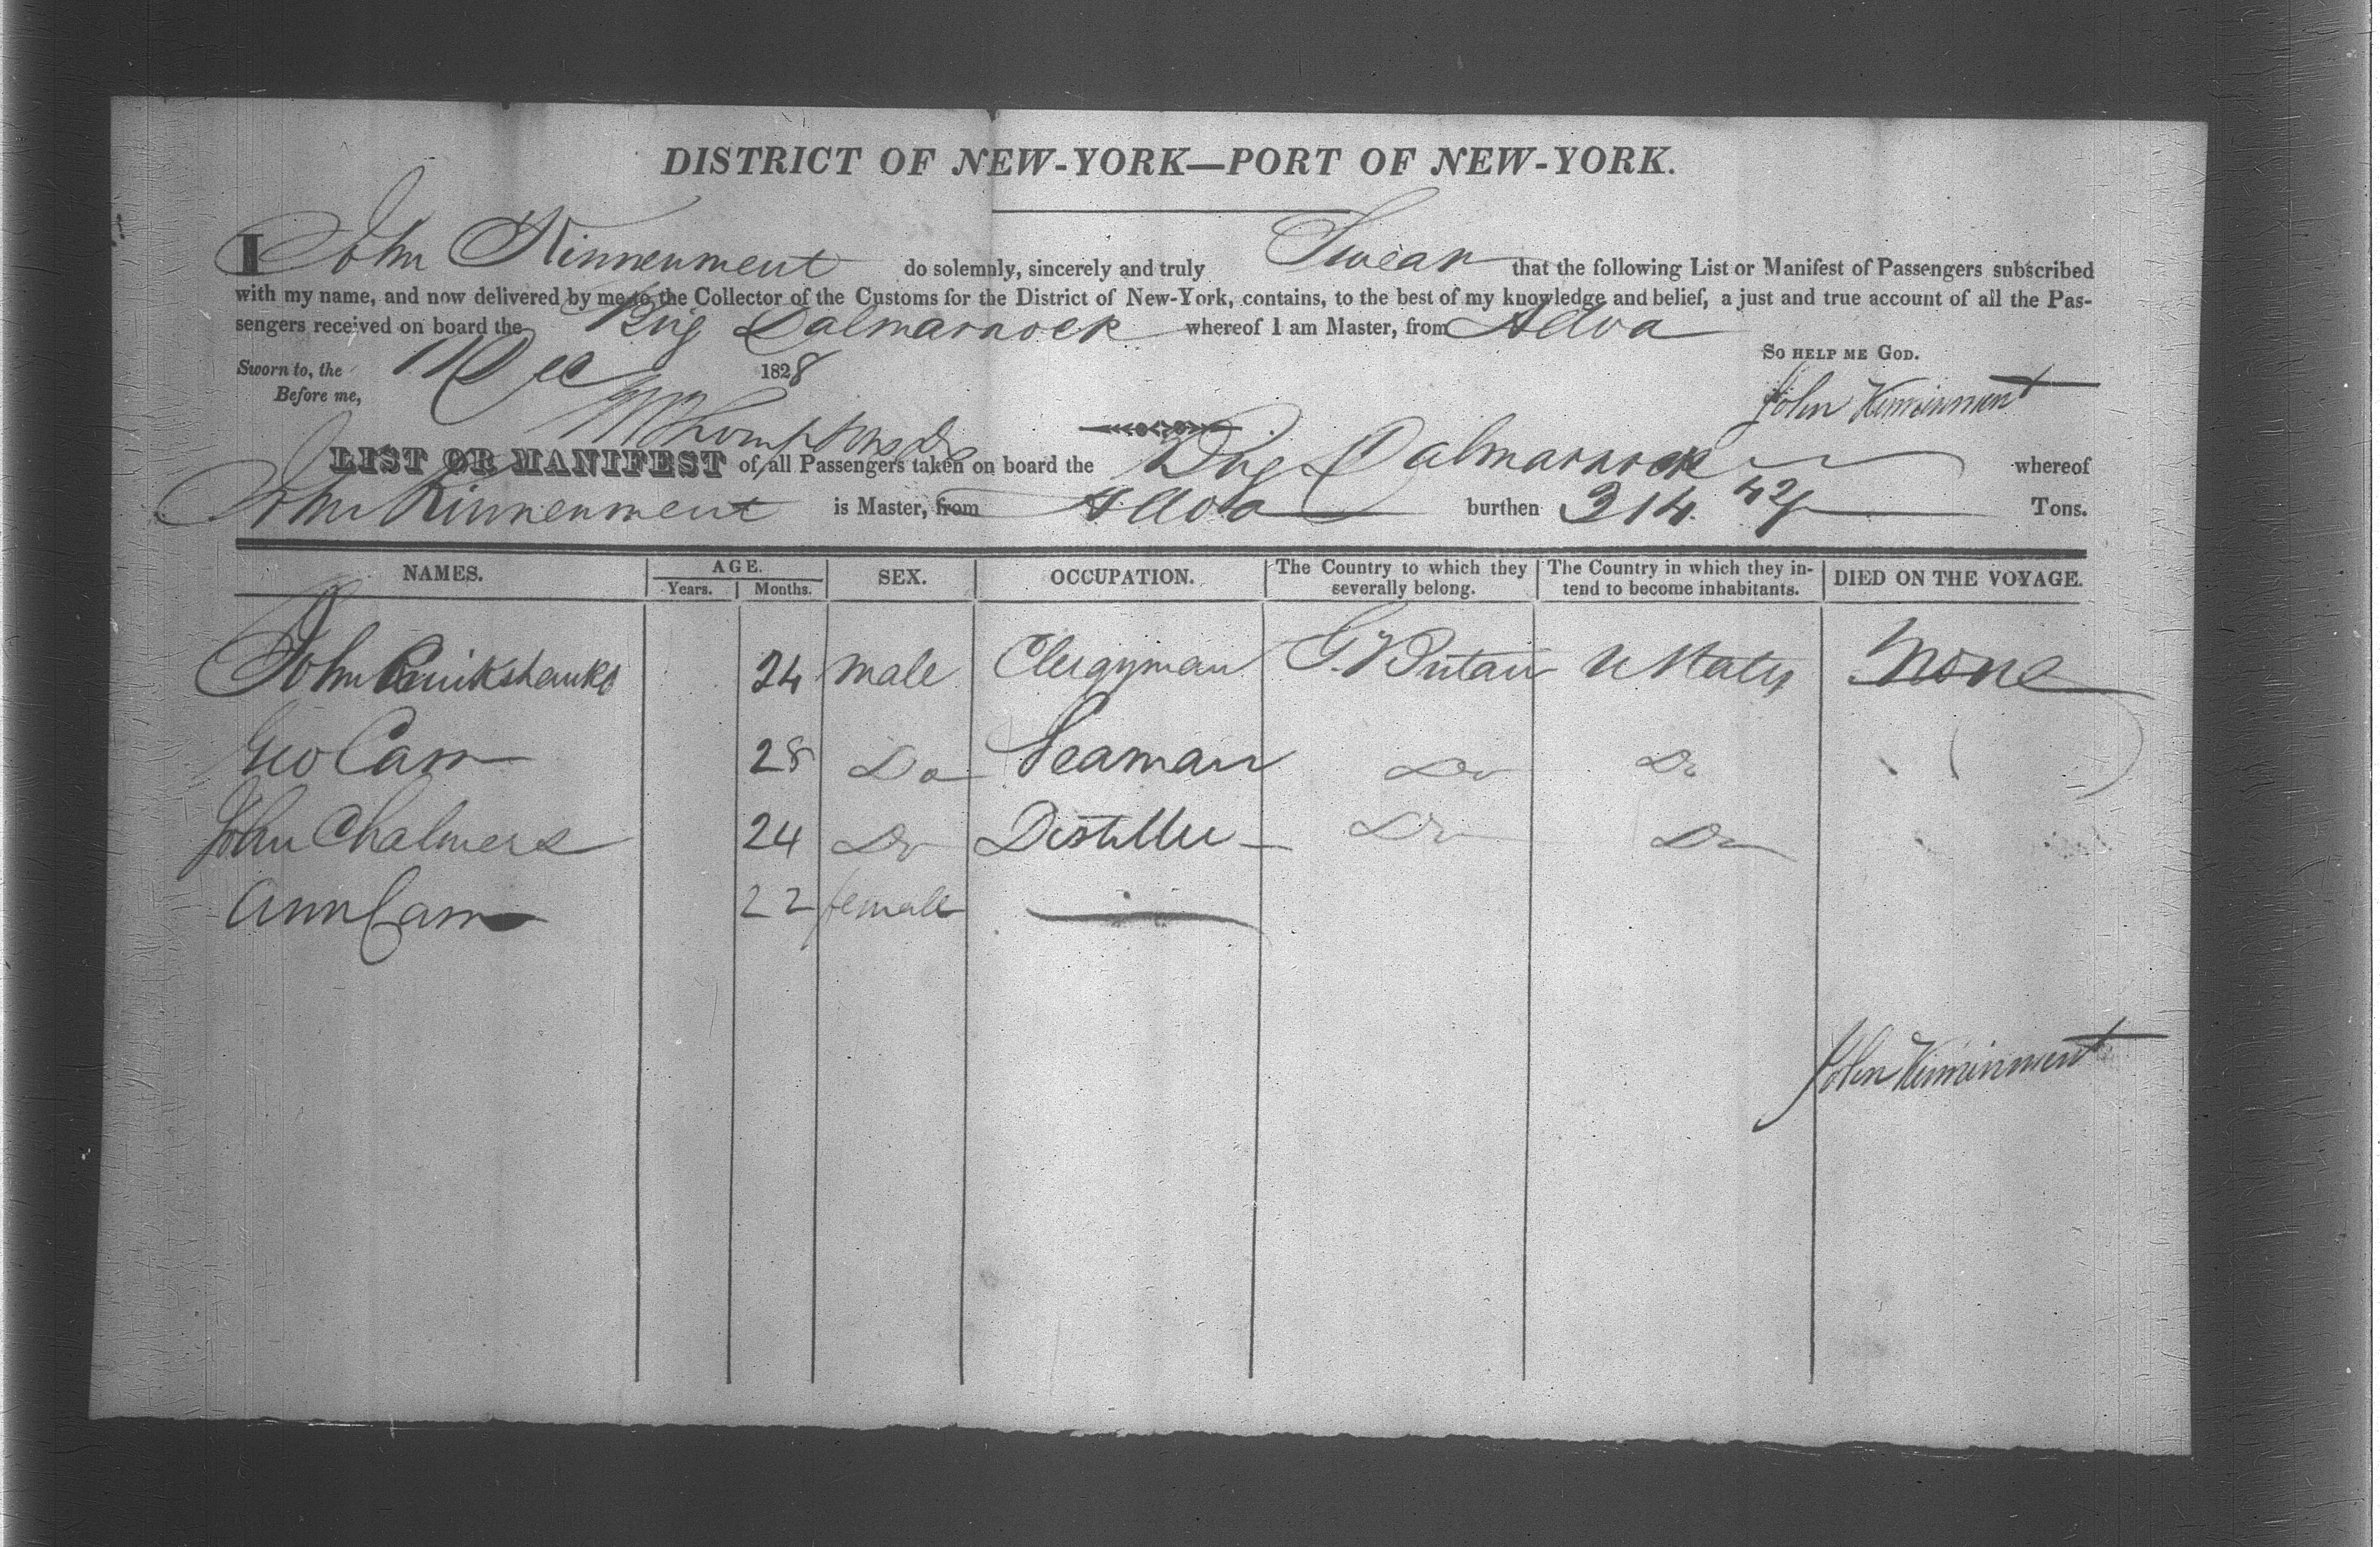 DISTRICT OF NEW-YORK—PORT OF NEW-YORK.
I John Kinnenment do solemnly, sincerely and truly Swear that the following List or Manifest of Passengers subscribed
with my name, and now delivered by me to the Collector of the Customs for the District of New-York, contains, to the best of my knowledge and belief, a just and true account of all the Pas-
sengers received on board the Brig Dalmarnock whereof I am Master, from Alloa
SO HELP ME GOD.
Sworn to, the 11 Dec 1828
Before me,
John Kinninment
LIST OR MANIFEST of all Passengers taken on board the Brig Dalmarnock whereof
John Kinnenment is Master, from Alloa burthen 314. Tons.
NAMES. AGE. SEX. OCCUPATION. The Country to which they severally belong. The Country in which they in- tend to become inhabitants. DIED ON THE VOYAGE.
Years. Months.
John Cruikshanks 24 male Clergyman G. Britain U States None
Geo Cam 28 Do Seaman Do Do
John Chalmers 24 Do Distiller Do Do
Ann Cam 22 female —
John Kinninment